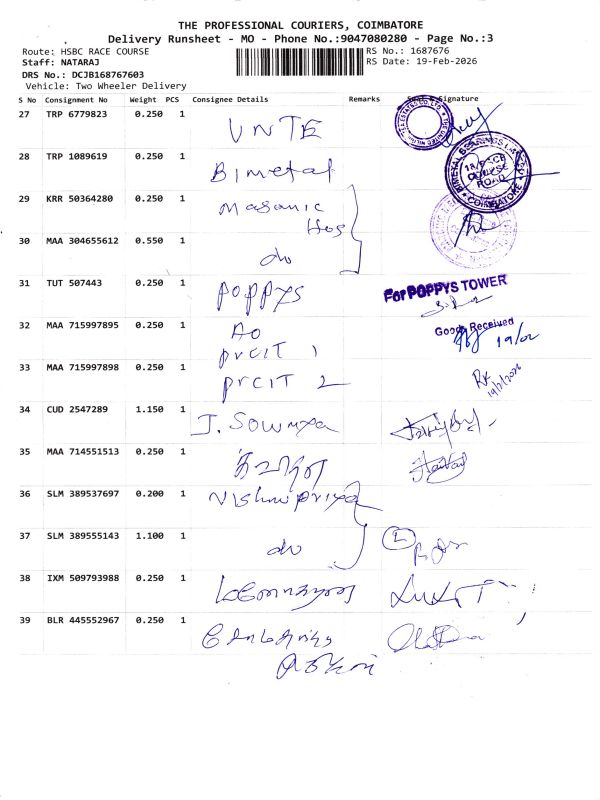 THE PROFESSIONAL COURIERS, COIMBATORE
Delivery Runsheet - MO - Phone No.:9047080280 - Page No.:3
Route: HSBC RACE COURSE
RS No.: 1687676
Staff: NATARAJ
RS Date: 19-Feb-2026
DRS No.: DCJB168767603
Vehicle: Two Wheeler Delivery
S No Consignment No Weight PCS Consignee Details Remarks Signature
27 TRP 6779823 0.250 1 UNTE
28 TRP 1089619 0.250 1 Bimetal
BIMETAL BEARINGS COIMBATORE
18, RACE COURSE ROAD
29 KRR 50364280 0.250 1 Masonic Hos
30 MAA 304655612 0.550 1 do
31 TUT 507443 0.250 1 POPPYS
For POPPYS TOWER
32 MAA 715997895 0.250 1 AO PrCIT 1
Goods Received
19/02
33 MAA 715997898 0.250 1 PrCIT 2
RK 19/2/2026
34 CUD 2547289 1.150 1 J. Sowmya
35 MAA 714551513 0.250 1
36 SLM 389537697 0.200 1 Vishnupriya
37 SLM 389555143 1.100 1 do
38 IXM 509793988 0.250 1
39 BLR 445552967 0.250 1